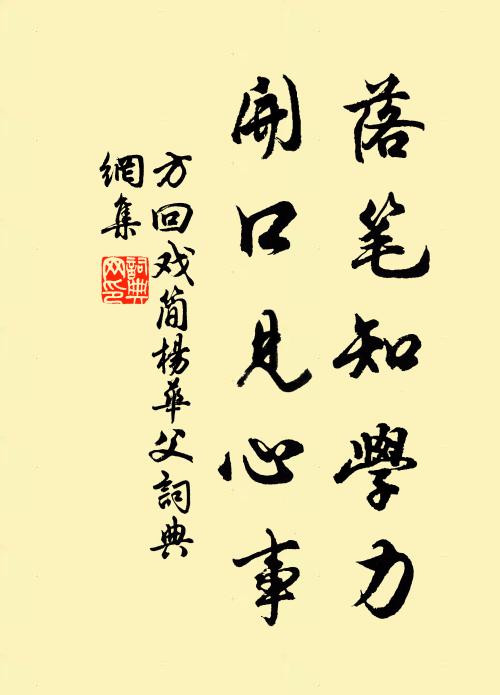 落笔知學力
開口見心事
方回戏简楊華父詞典
網集
詞典网印